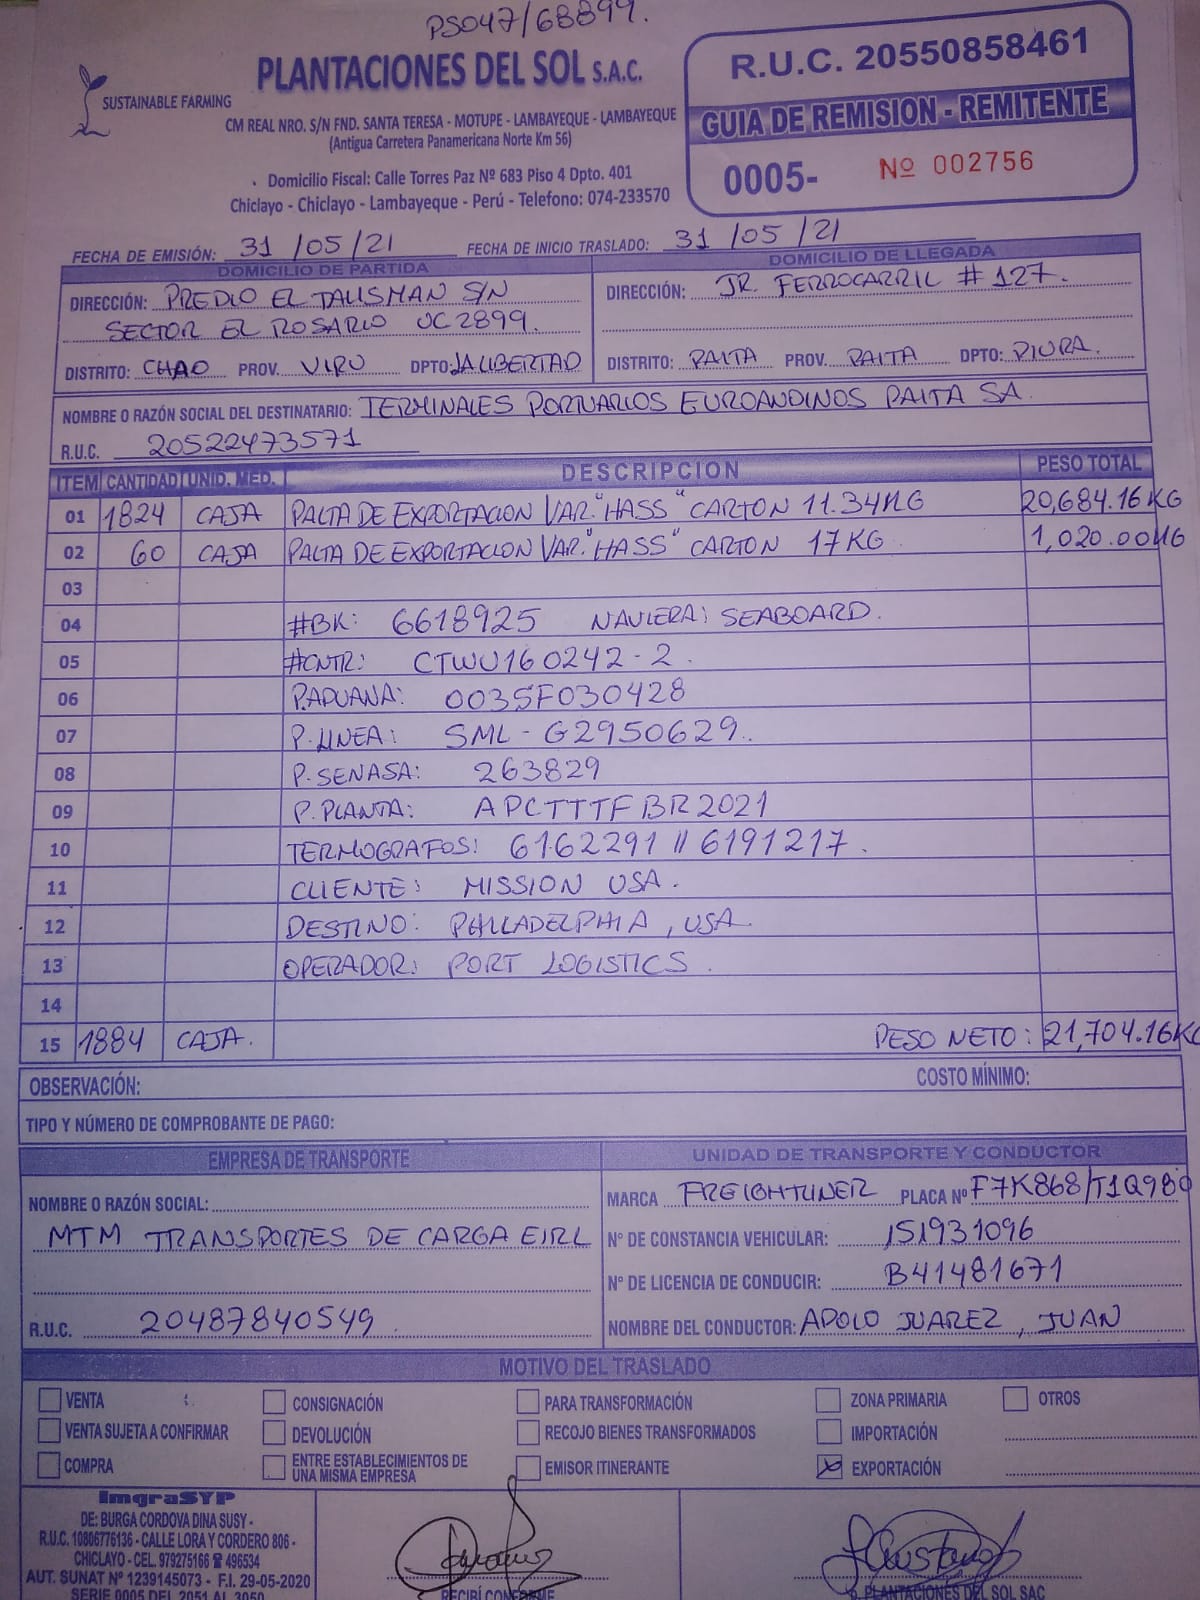 PS047/68899.
PLANTACIONES DEL SOL S.A.C.
SUSTAINABLE FARMING
CM REAL NRO. S/N FND. SANTA TERESA - MOTUPE - LAMBAYEQUE - LAMBAYEQUE
(Antigua Carretera Panamericana Norte Km 56)
Domicilio Fiscal: Calle Torres Paz Nº 683 Piso 4 Dpto. 401
Chiclayo - Chiclayo - Lambayeque - Perú - Telefono: 074-233570
R.U.C. 20550858461
GUIA DE REMISION - REMITENTE
0005- Nº 002756
FECHA DE EMISIÓN: 31/05/21 FECHA DE INICIO TRASLADO: 31/05/21
DOMICILIO DE PARTIDA
DIRECCIÓN: PREDIO EL TALISMAN S/N
SECTOR EL ROSARIO UC 2899.
DISTRITO: CHAO PROV. VIRU DPTO: LA LIBERTAD
DOMICILIO DE LLEGADA
DIRECCIÓN: JR. FERROCARRIL # 127.
DISTRITO: PAITA PROV. PAITA DPTO: PIURA.
NOMBRE O RAZÓN SOCIAL DEL DESTINATARIO: TERMINALES PORTUARIOS EUROANDINOS PAITA SA.
R.U.C. 20522473571
ITEM CANTIDAD UNID. MED. DESCRIPCION PESO TOTAL
01 1824 CAJA PALTA DE EXPORTACION VAR. "HASS" CARTON 11.34KG 20,684.16KG
02 60 CAJA PALTA DE EXPORTACION VAR. "HASS" CARTON 17KG. 1,020.00KG
03
04 #BK: 6618925 NAVIERA: SEABOARD.
05 #CNTR: CTWU160242-2.
06 P.ADUANA: 003SF030428
07 P.LINEA: SML-G2950629.
08 P.SENASA: 263829
09 P.PLANTA: APCTTTFBR2021
10 TERMOGRAFOS: 6162291 // 6191217.
11 CLIENTE: MISSION USA.
12 DESTINO: PHILLADELPHIA, USA.
13 OPERADOR: PORT LOGISTICS.
14
15 1884 CAJA. PESO NETO: 21,704.16KG
OBSERVACIÓN: COSTO MÍNIMO:
TIPO Y NÚMERO DE COMPROBANTE DE PAGO:
EMPRESA DE TRANSPORTE
NOMBRE O RAZÓN SOCIAL:
MTM TRANSPORTES DE CARGA EIRL
R.U.C. 20487840549
UNIDAD DE TRANSPORTE Y CONDUCTOR
MARCA FREIGHTLINER PLACA Nº F7K868/T1Q980
Nº DE CONSTANCIA VEHICULAR: 151931096
Nº DE LICENCIA DE CONDUCIR: B41481671
NOMBRE DEL CONDUCTOR: APOLO JUAREZ, JUAN
MOTIVO DEL TRASLADO
VENTA CONSIGNACIÓN PARA TRANSFORMACIÓN ZONA PRIMARIA OTROS
VENTA SUJETA A CONFIRMAR DEVOLUCIÓN RECOJO BIENES TRANSFORMADOS IMPORTACIÓN
COMPRA ENTRE ESTABLECIMIENTOS DE UNA MISMA EMPRESA EMISOR ITINERANTE X EXPORTACIÓN
ImgraSYP
DE: BURGA CORDOVA DINA SUSY -
R.U.C. 10806776136 - CALLE LORA Y CORDERO 806 -
CHICLAYO - CEL. 979275166 ☎ 496534
AUT. SUNAT Nº 1239145073 - F.I. 29-05-2020
SERIE 0005 DEL 2051 AL 3050
RECIBÍ CONFORME
p. PLANTACIONES DEL SOL SAC